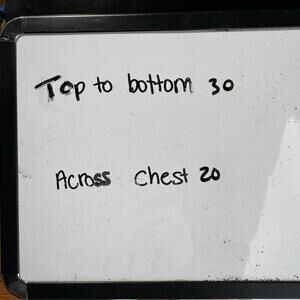 Top to bottom 30
Across Chest 20